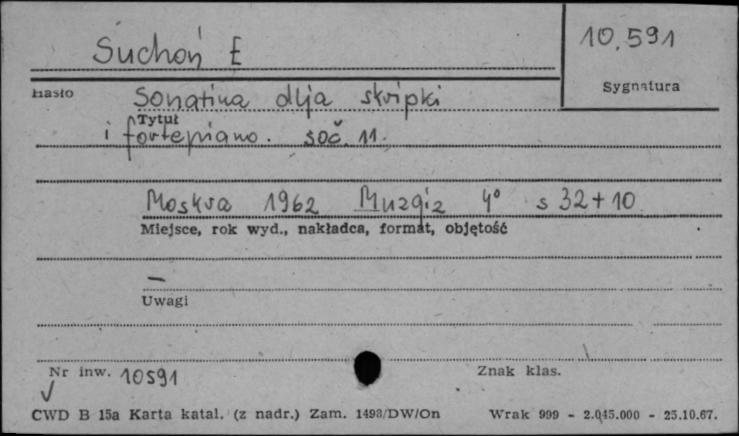 Suchoń E
10.591
Hasło
Sygnatura
Sonatina dlja skripki
Tytuł
i fortepiano. soč. 11.
Moskva 1962 Muzgiz 4° s 32+10
Miejsce, rok wyd., nakładca, format, objętość
—
Uwagi
Nr inw. 10591
Znak klas.
CWD B 15a Karta katal. (z nadr.) Zam. 1493/DW/On Wrak 999 - 2.045.000 - 25.10.67.